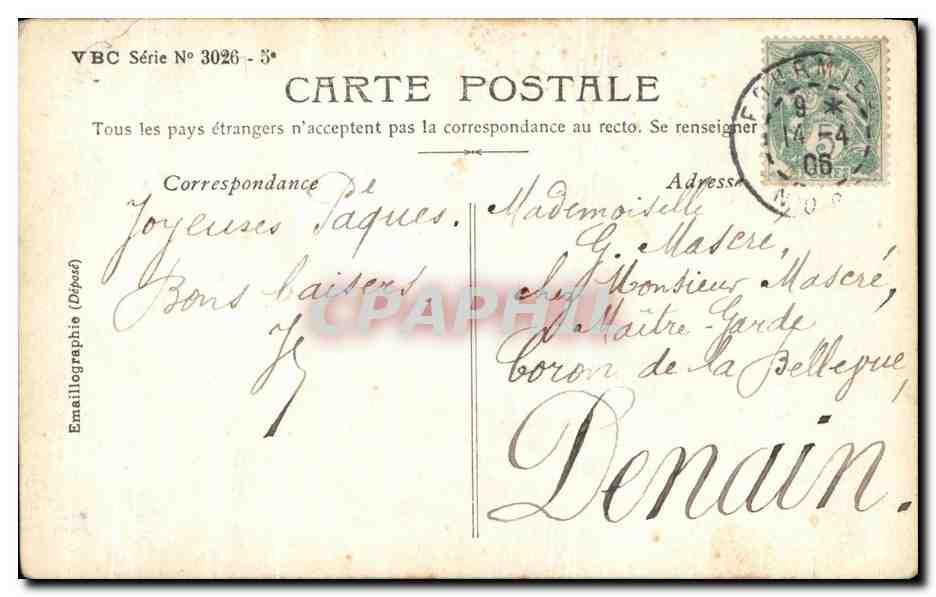 VBC Série Nº 3026 - 5e
CARTE POSTALE
Tous les pays étrangers n'acceptent pas la correspondance au recto. Se renseigner
Correspondance
Joyeuses Pâques.
Bons baisers.
Adresse
Mademoiselle
G. Mascré,
chez Monsieur Mascré,
Maître-Garde
Coron de la Bellevue,
Denain.
Emaillographie (Déposé)
FOURMIES
9 *
14 -4
06
NORD
5
CPAPHIL